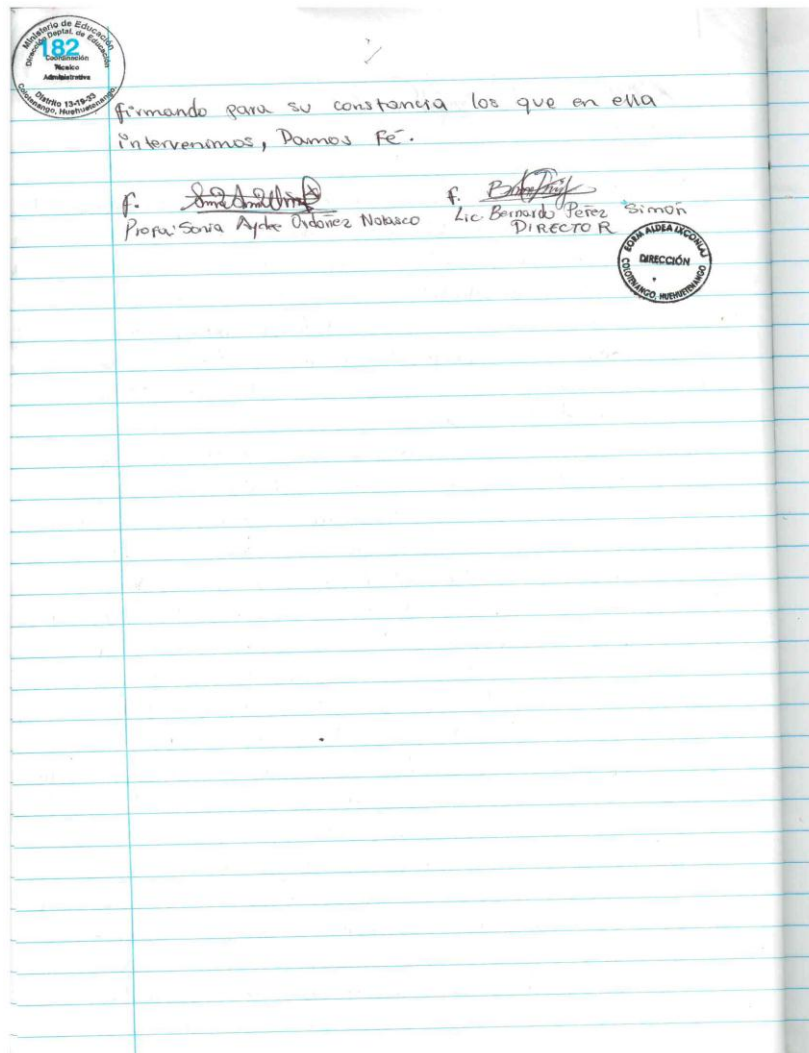 Ministerio de Educación
Dirección Deptal. de Educación
182
Coordinación
Técnico
Administrativa
Distrito 13-19-33
Colotenango, Huehuetenango.
firmando para su constancia los que en ella
intervenimos, Damos Fé.
f. f.
Profa: Sonia Ayde Ordoñez Nolasco Lic. Bernardo Pérez Simón
DIRECTOR
EORM ALDEA IXCONLAJ
DIRECCIÓN
COLOTENANGO, HUEHUETENANGO